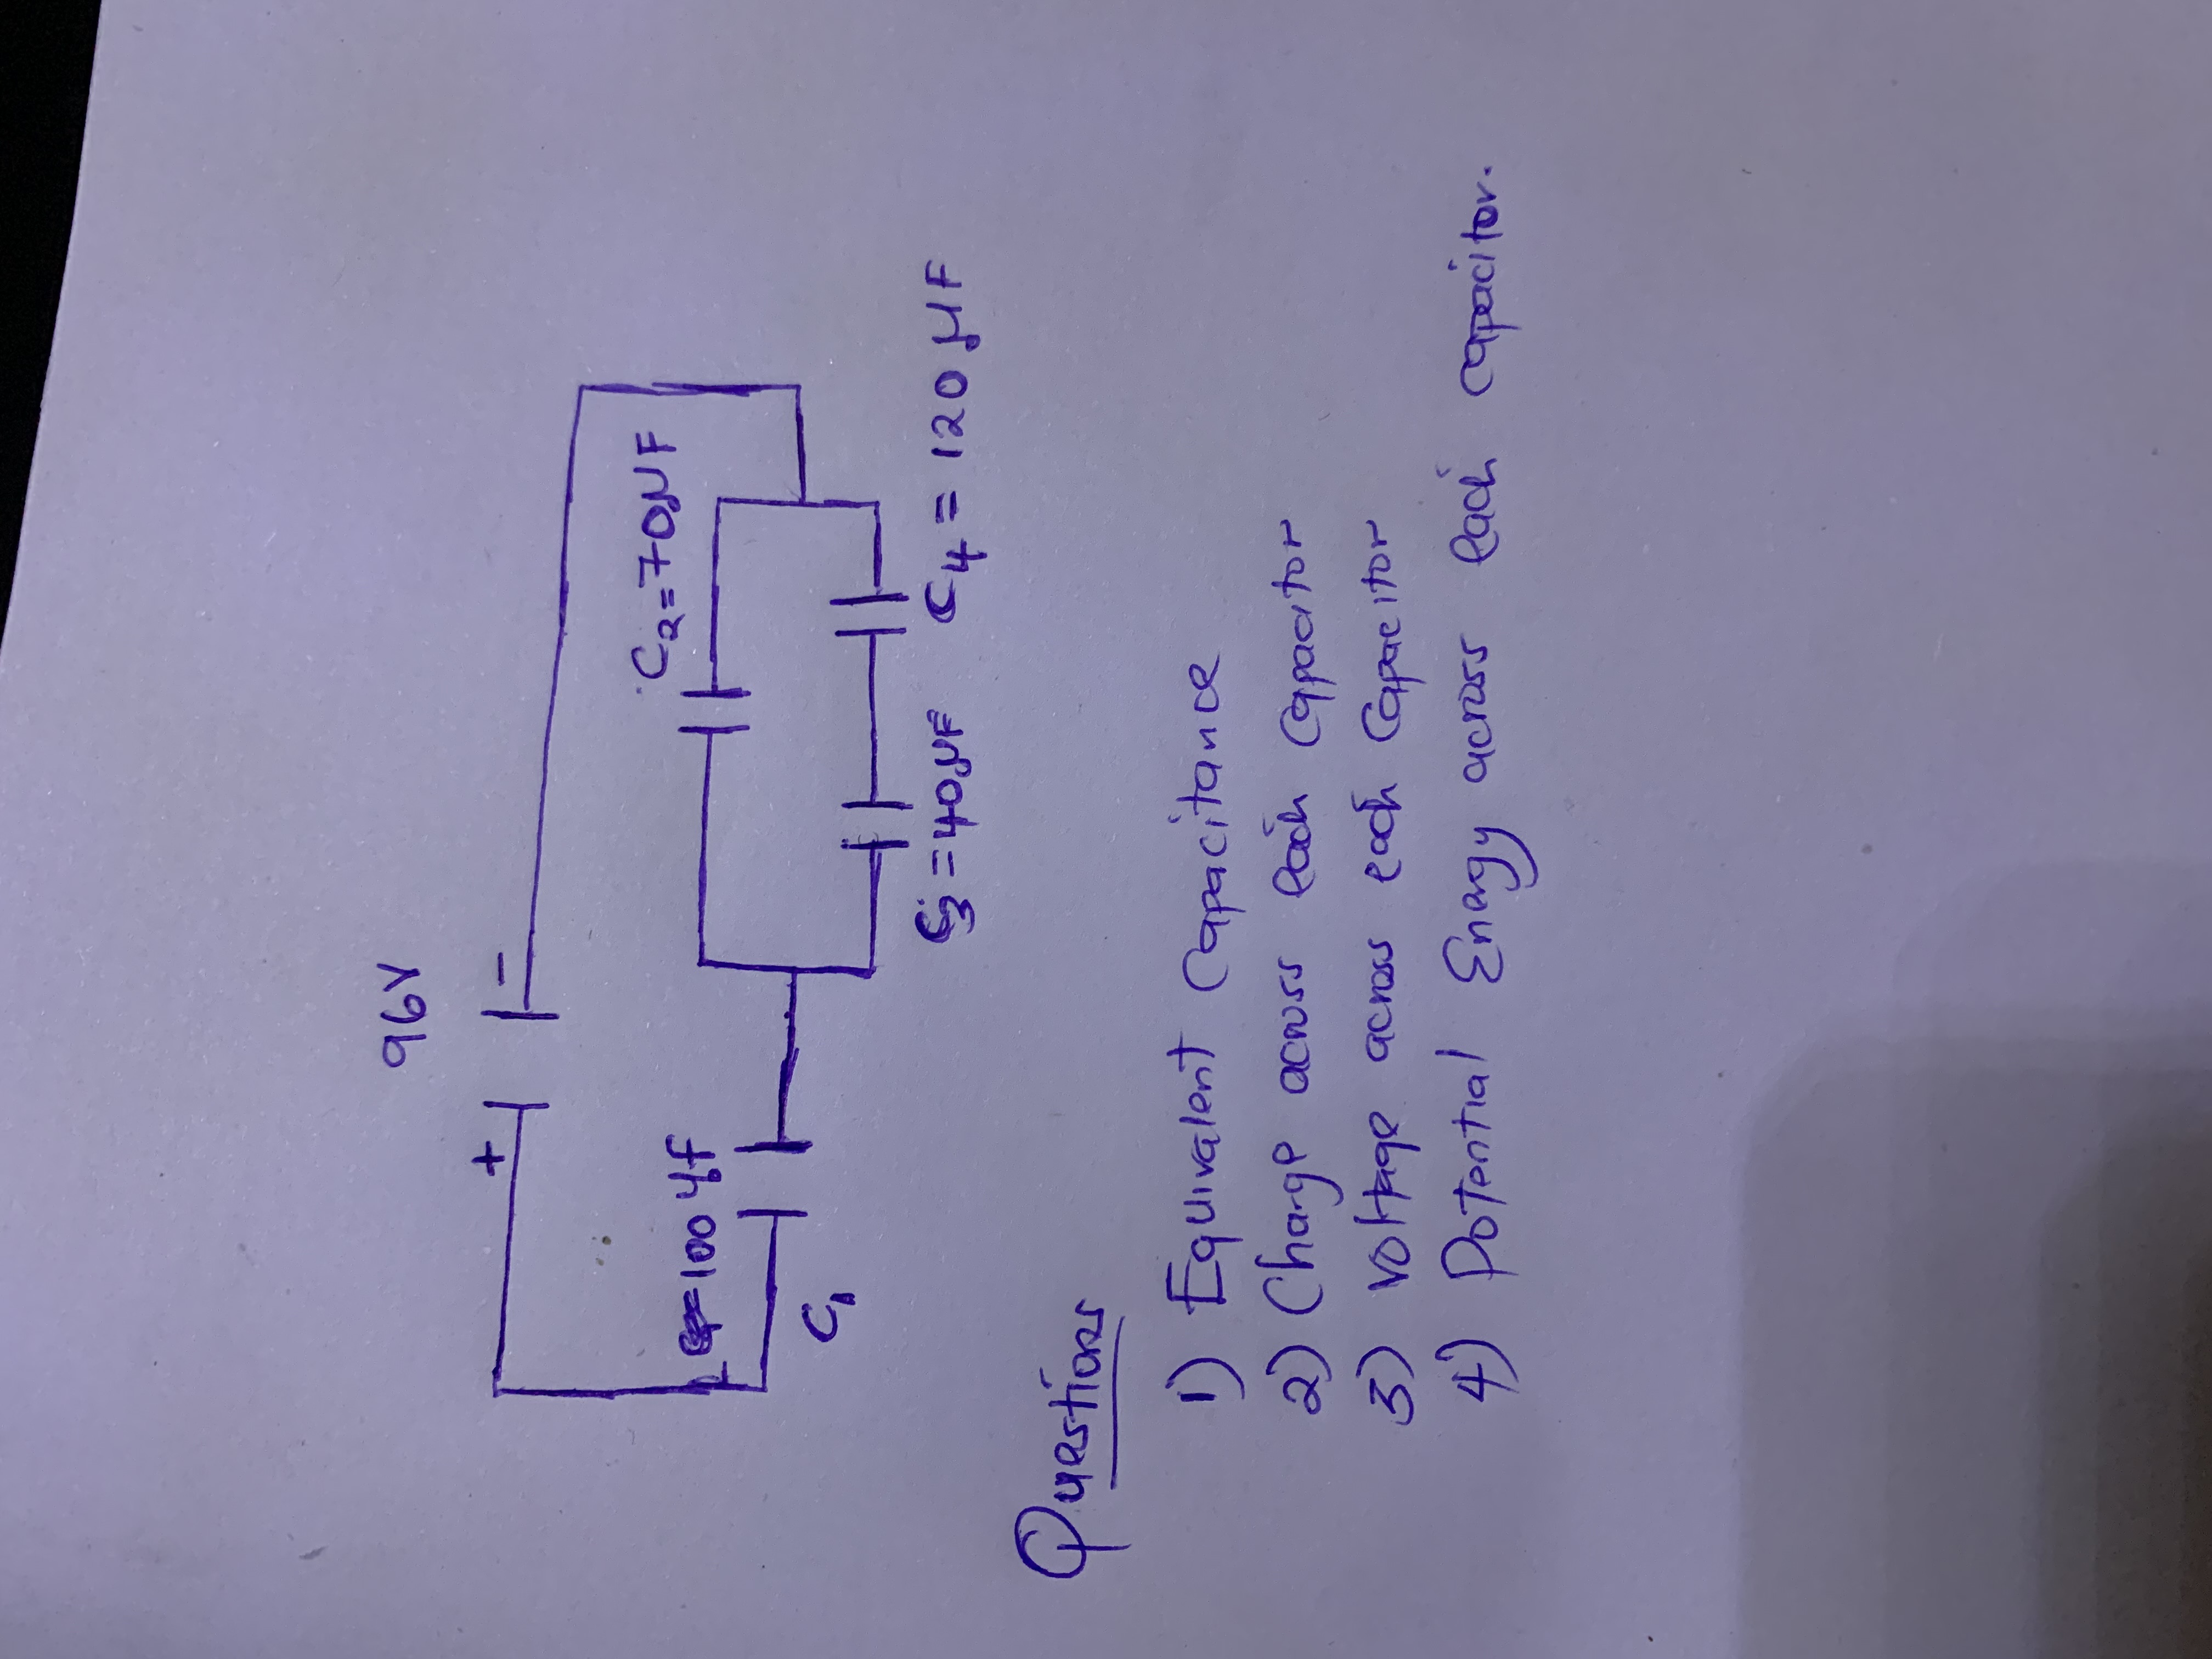 96V
+ -
=100 μf
C₂=70μF
C₁
C₃=40μF
C₄ = 120 μF
Questions
1) Equivalent Capacitance
2) Charge across each Capacitor
3) Voltage across each Capacitor
4) Potential Energy across each capacitor.